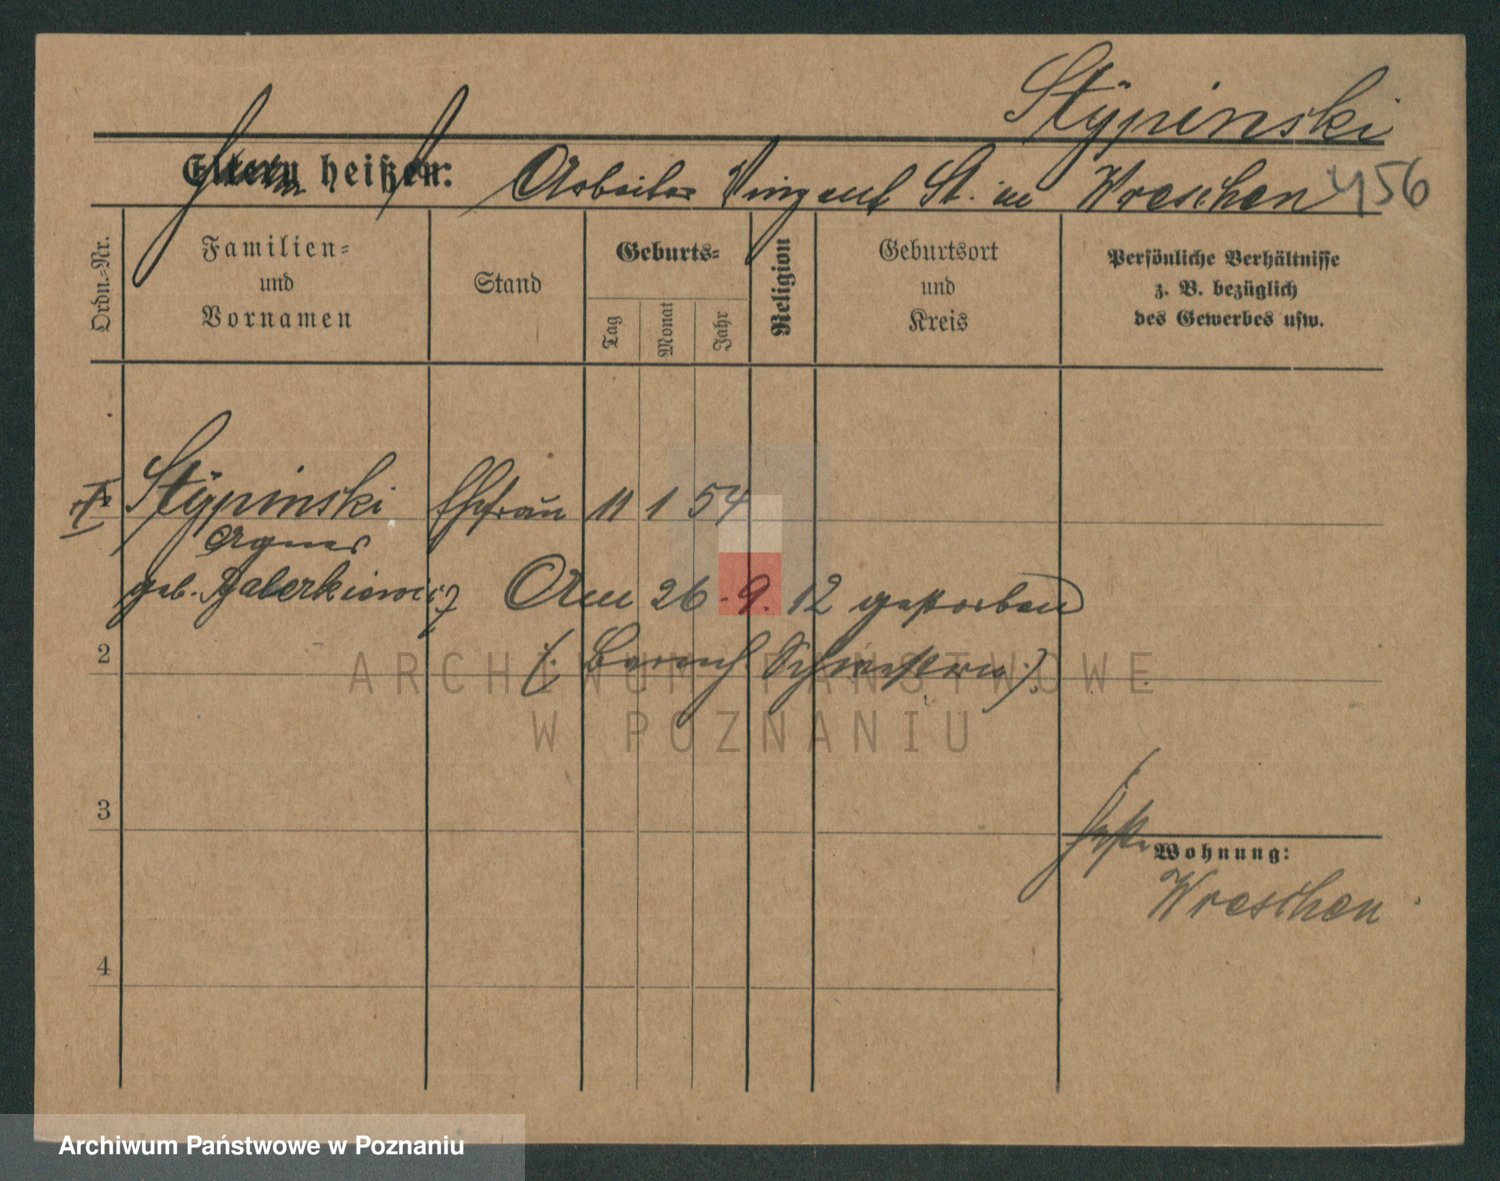 Stÿpinski
Eltern heißen: Arbeiter Vinzent St. in Wreschen 456
Ordn.-Nr.
Familien-
und
Vornamen
Stand
Geburts-
Tag
Monat
Jahr
Religion
Geburtsort
und
Kreis
Persönliche Verhältnisse
z. B. bezüglich
des Gewerbes usw.
Stÿpinski Ehefrau 11 1 54
Agnes
geb. Am 26.9.12 gestorben
2 (: Barmh. Schwestern :)
ARCHIWUM PAŃSTWOWE
W POZNANIU
3
Wohnung:
Wreschen
4
Archiwum Państwowe w Poznaniu